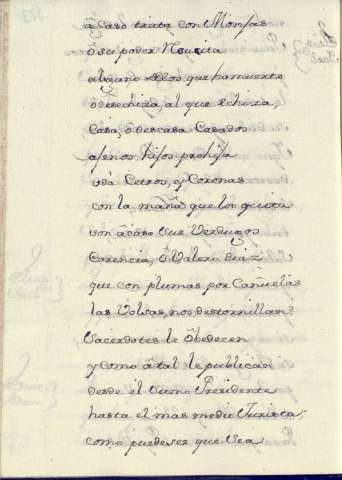 q̃ Caso trata con Monjas
ò su poder Necesita
alguno dellos, que ha muerto
ò desechiza, al que echiza,
Casa, ò descasa Casados
agenos hijos prohija
vsa Cetros, y Coronas
con la maña que los quita
son acaso sus Verdugos
Carencia, ò Valero diaz
que con plumas por Cañuelas
las Volsas, nos destornillan?
Sacerdotes le òbedecen
y como à tal le publican
desde él sumo Presidente
hasta el mas medio Jurista;
como puede ser que Vea